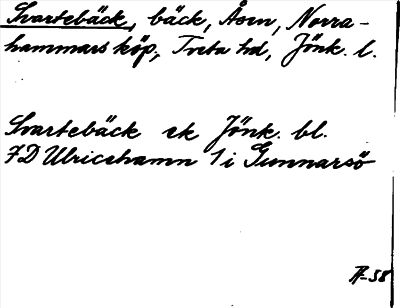 Svartebäck, bäck, Åsen, Norra-
hammars köp., Tveta hd, Jönk. l.
Svartebäck ek Jönk. bl.
7D Ulricehamn 1 i Gunnarsö